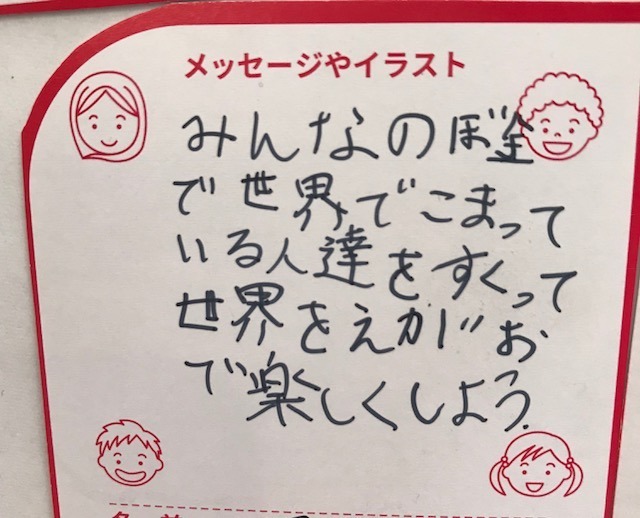 メッセージやイラスト
みんなのぼ金
で世界でこまって
いる人達をすくって
世界をえがお
で楽しくしよう.